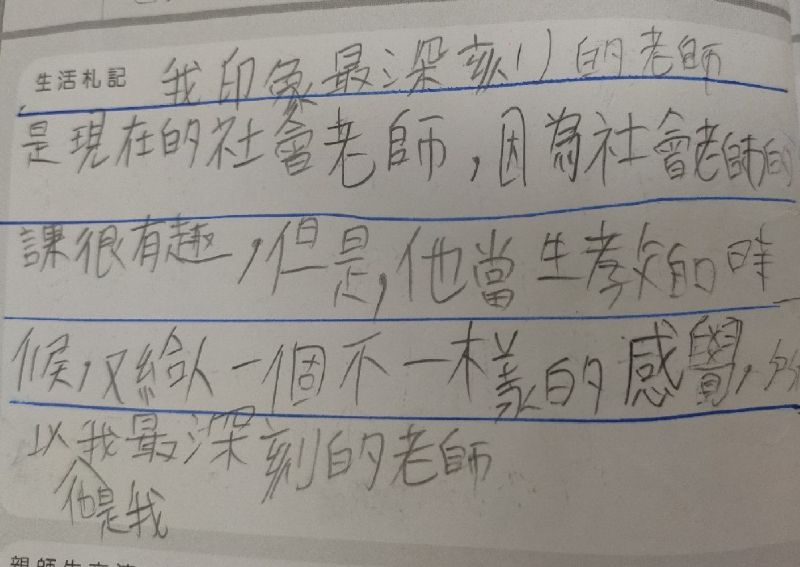 生活札記 我印象最深刻的老師
是現在的社會老師，因為社會老師的
課很有趣，但是，他當生教的時
候，又給人一個不一樣的感覺，所
以我最深刻的老師
他是我